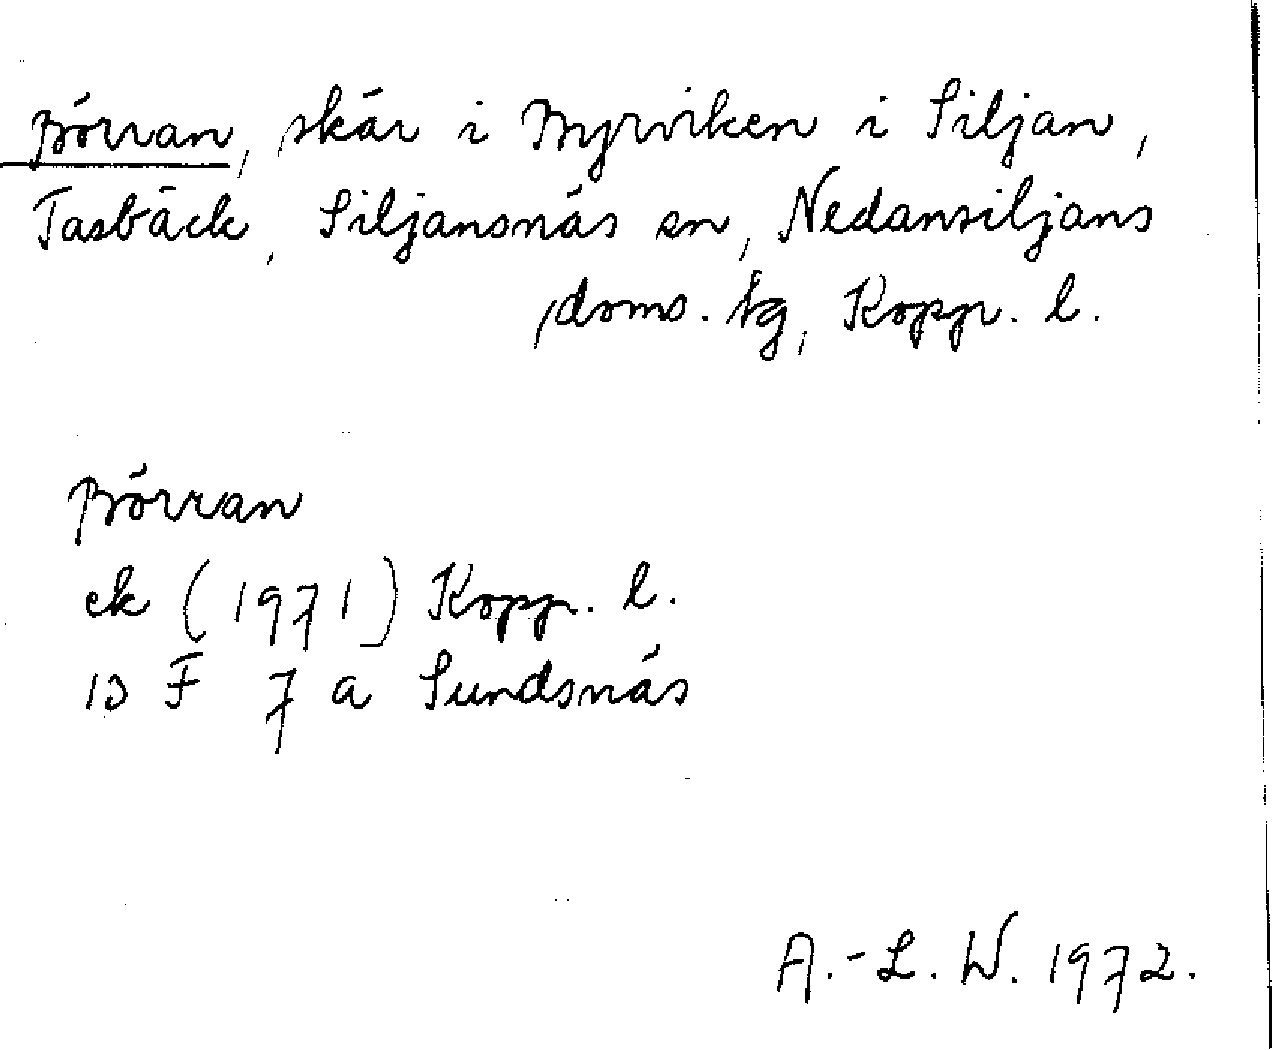 Börran, skär i Myrviken i Siljan,
Tasbäck, Siljansnäs sn, Nedansiljans
doms. tg, Kopp. l.
Börran
ek (1971) Kopp. l.
13 F 7 a Sundsnäs
A.-L. W. 1972.